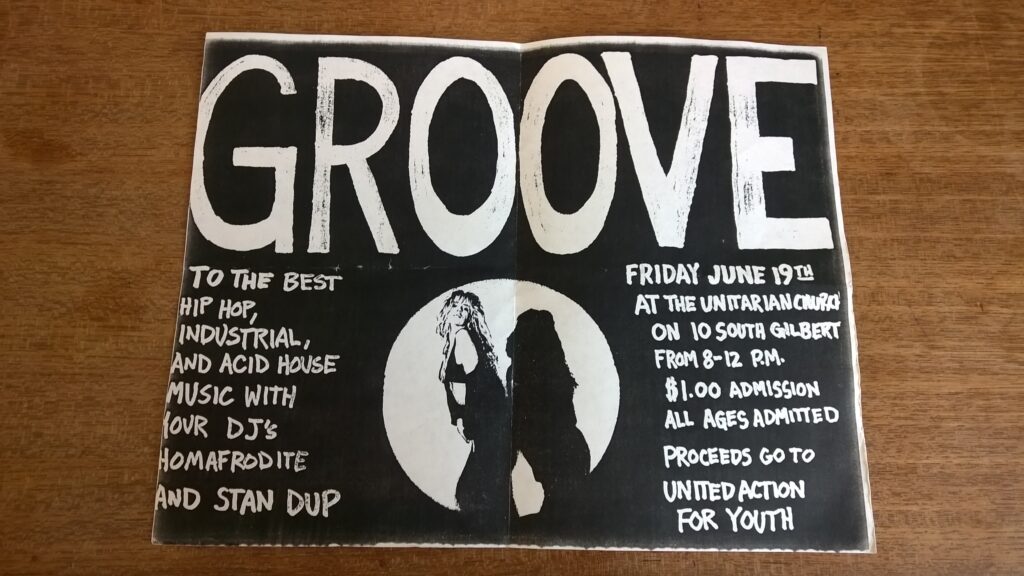 GROOVE
TO THE BEST
HIP HOP,
INDUSTRIAL,
AND ACID HOUSE
MUSIC WITH
YOUR DJ's
HOMAFRODITE
AND STAN DUP
FRIDAY JUNE 19TH
AT THE UNITARIAN CHURCH
ON 10 SOUTH GILBERT
FROM 8-12 P.M.
$1.00 ADMISSION
ALL AGES ADMITTED
PROCEEDS GO TO
UNITED ACTION
FOR YOUTH